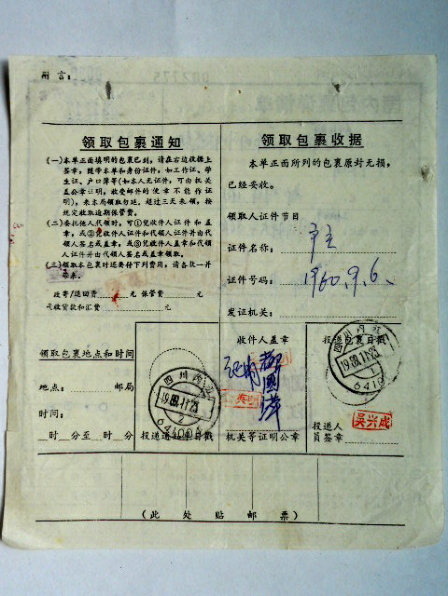 附言：
领取包裹通知
(一)本单正面填明的包裹已到，请在右边收据上
签章，随带本单和身份证件，如工作证、学
生证、户口簿等(如本人无证件，可由机关
具公函证明，收发邮件的便章不能作证
明)，来本局领取勿延，超过三天来领，按
规定收取逾期保管费。
(二)委托他人代领时，可①凭收件人证件和盖
章，或②凭收件人证件和代领人证件并由代
领人签名或盖章，或③凭收件人盖章和代领
人证件并由代领人签名或盖章领取。
(三)领取本包裹时还要付下列费用，请各级一并
带来。
改寄/退回费 元 保管费 元
代收货款和汇费 元
领取包裹收据
本单正面所列的包裹原封无损，
已经妥收。
领取人证件节目
证件名称：户主
证件号码：1960.9.6.
发证机关：
领取包裹地点和时间
地点： 邮局
时间：
时 分至 时 分
四川内江
19.11.23
投递 日戳
收件人盖章
机关等证明公章
投递包裹日戳
四川内江
投递人
员签章
吴兴成
(此处贴邮票)